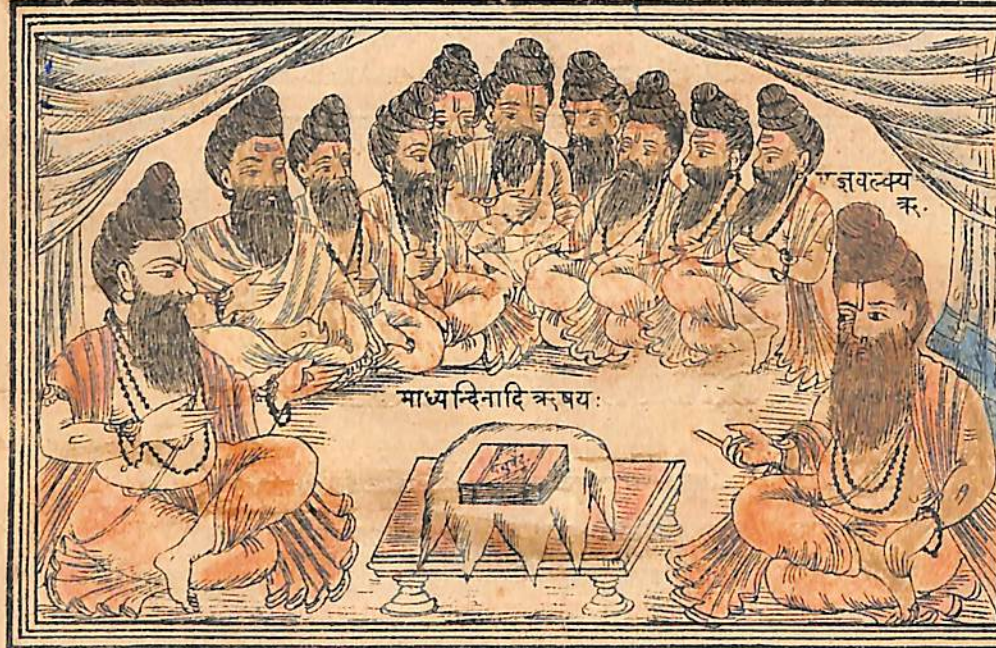 याज्ञवल्क्य
ऋ.
माध्यन्दिनादि ऋषयः